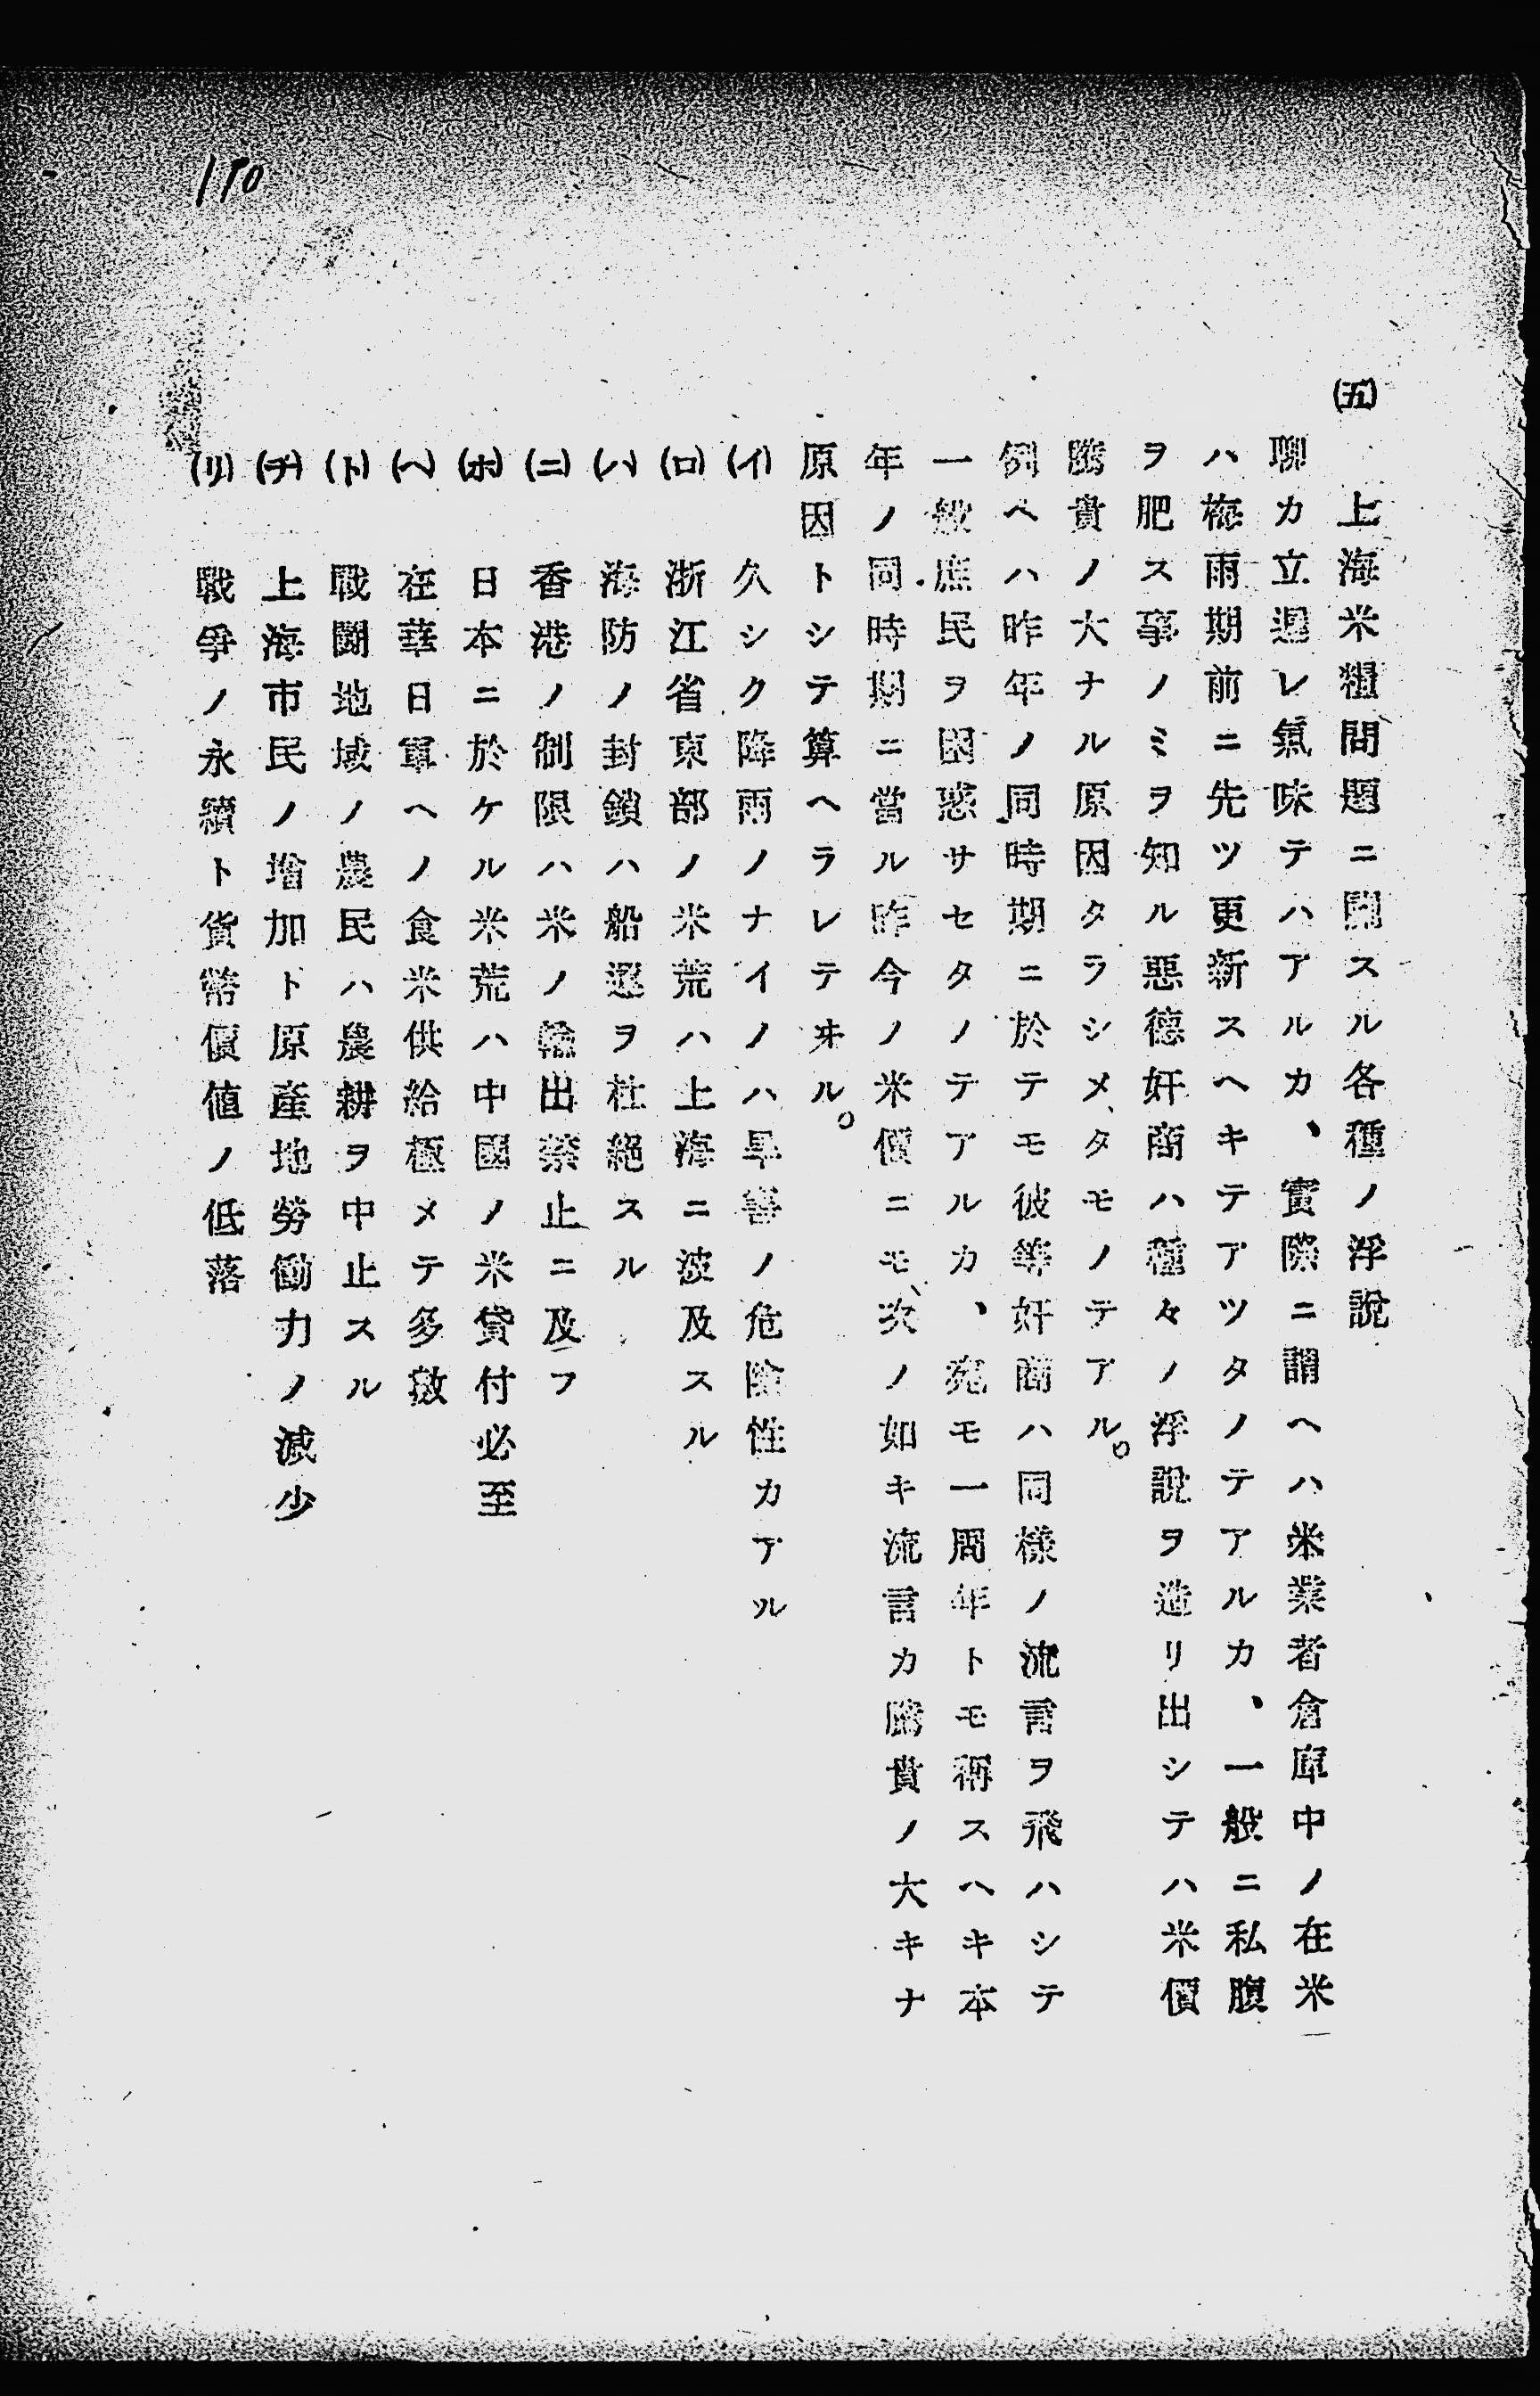 110
(五) 上海米糧問題ニ關スル各種ノ浮說
聊カ立遲レ氣味テハアルカ、實際ニ謂ヘハ米業者倉庫中ノ在米
ハ梅雨期前ニ先ツ更新スヘキテアツタノテアルカ、一般ニ私腹
ヲ肥ス事ノミヲ知ル惡德奸商ハ種々ノ浮說ヲ造リ出シテハ米價
騰貴ノ大ナル原因タラシメタモノテアル。
例ヘハ昨年ノ同時期ニ於テモ彼等奸商ハ同樣ノ流言ヲ飛ハシテ
一般庶民ヲ困惑サセタノテアルカ、宛モ一周年トモ稱スヘキ本
年ノ同時期ニ當ル昨今ノ米價ニモ、次ノ如キ流言カ騰貴ノ大キナ
原因トシテ算ヘラレテヰル。
(イ) 久シク降雨ノナイノハ旱害ノ危險性カアル
(ロ) 浙江省東部ノ米荒ハ上海ニ波及スル
(ハ) 海防ノ封鎖ハ船運ヲ杜絕スル
(ニ) 香港ノ制限ハ米ノ輸出禁止ニ及フ
(ホ) 日本ニ於ケル米荒ハ中國ノ米貸付必至
(ヘ) 在華日軍ヘノ食米供給極メテ多數
(ト) 戰鬪地域ノ農民ハ農耕ヲ中止スル
(チ) 上海市民ノ增加ト原產地勞働力ノ減少
(リ) 戰爭ノ永續ト貨幣價値ノ低落